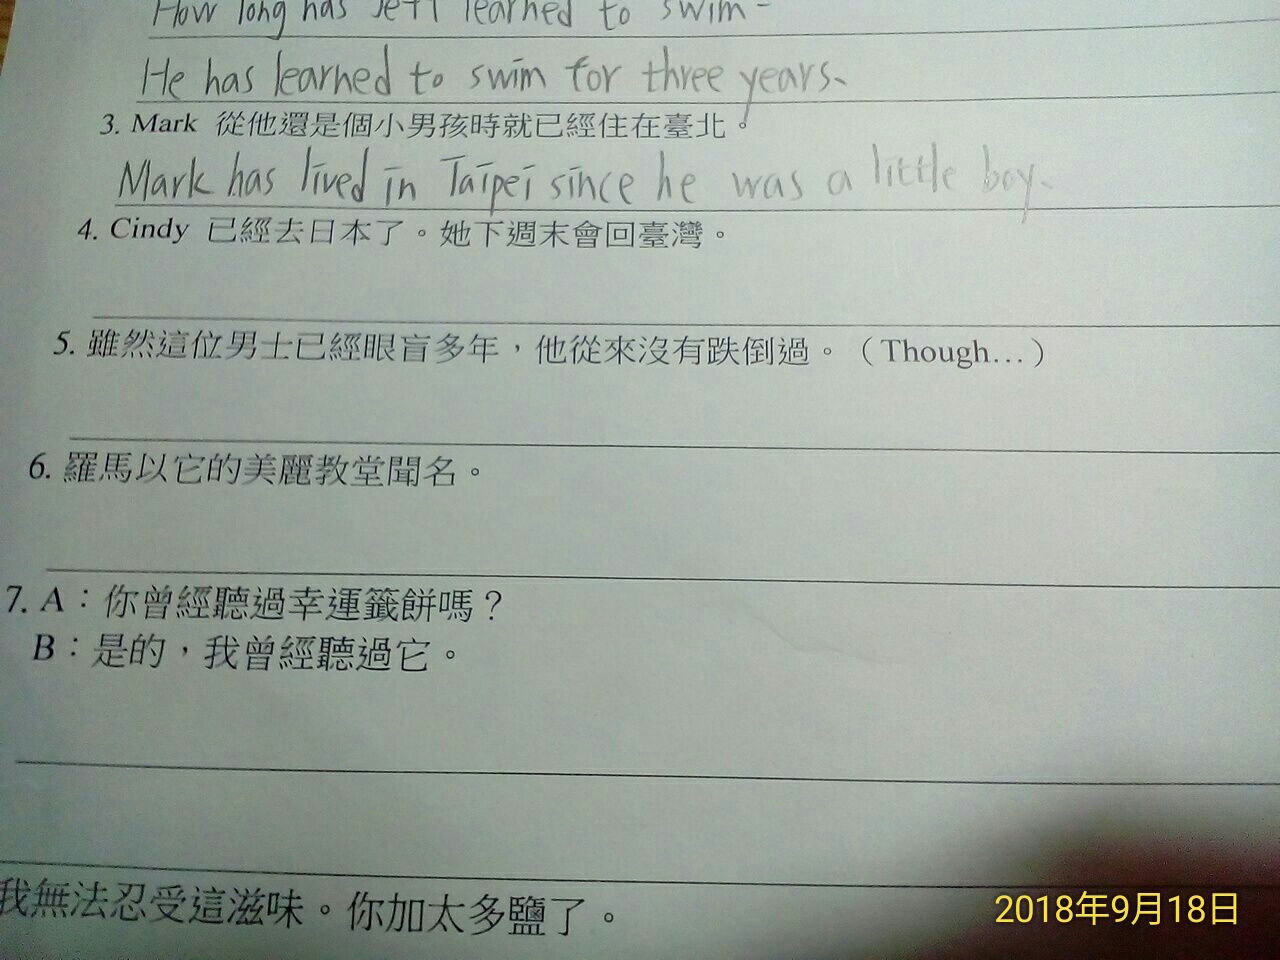 How long has Jeff learned to swim-
He has learned to swim for three years.
3. Mark 從他還是個小男孩時就已經住在臺北。
Mark has lived in Taipei since he was a little boy.
4. Cindy 已經去日本了。她下週末會回臺灣。
5. 雖然這位男士已經眼盲多年，他從來沒有跌倒過。（Though…）
6. 羅馬以它的美麗教堂聞名。
7. A：你曾經聽過幸運籤餅嗎？
B：是的，我曾經聽過它。
我無法忍受這滋味。你加太多鹽了。
2018年9月18日